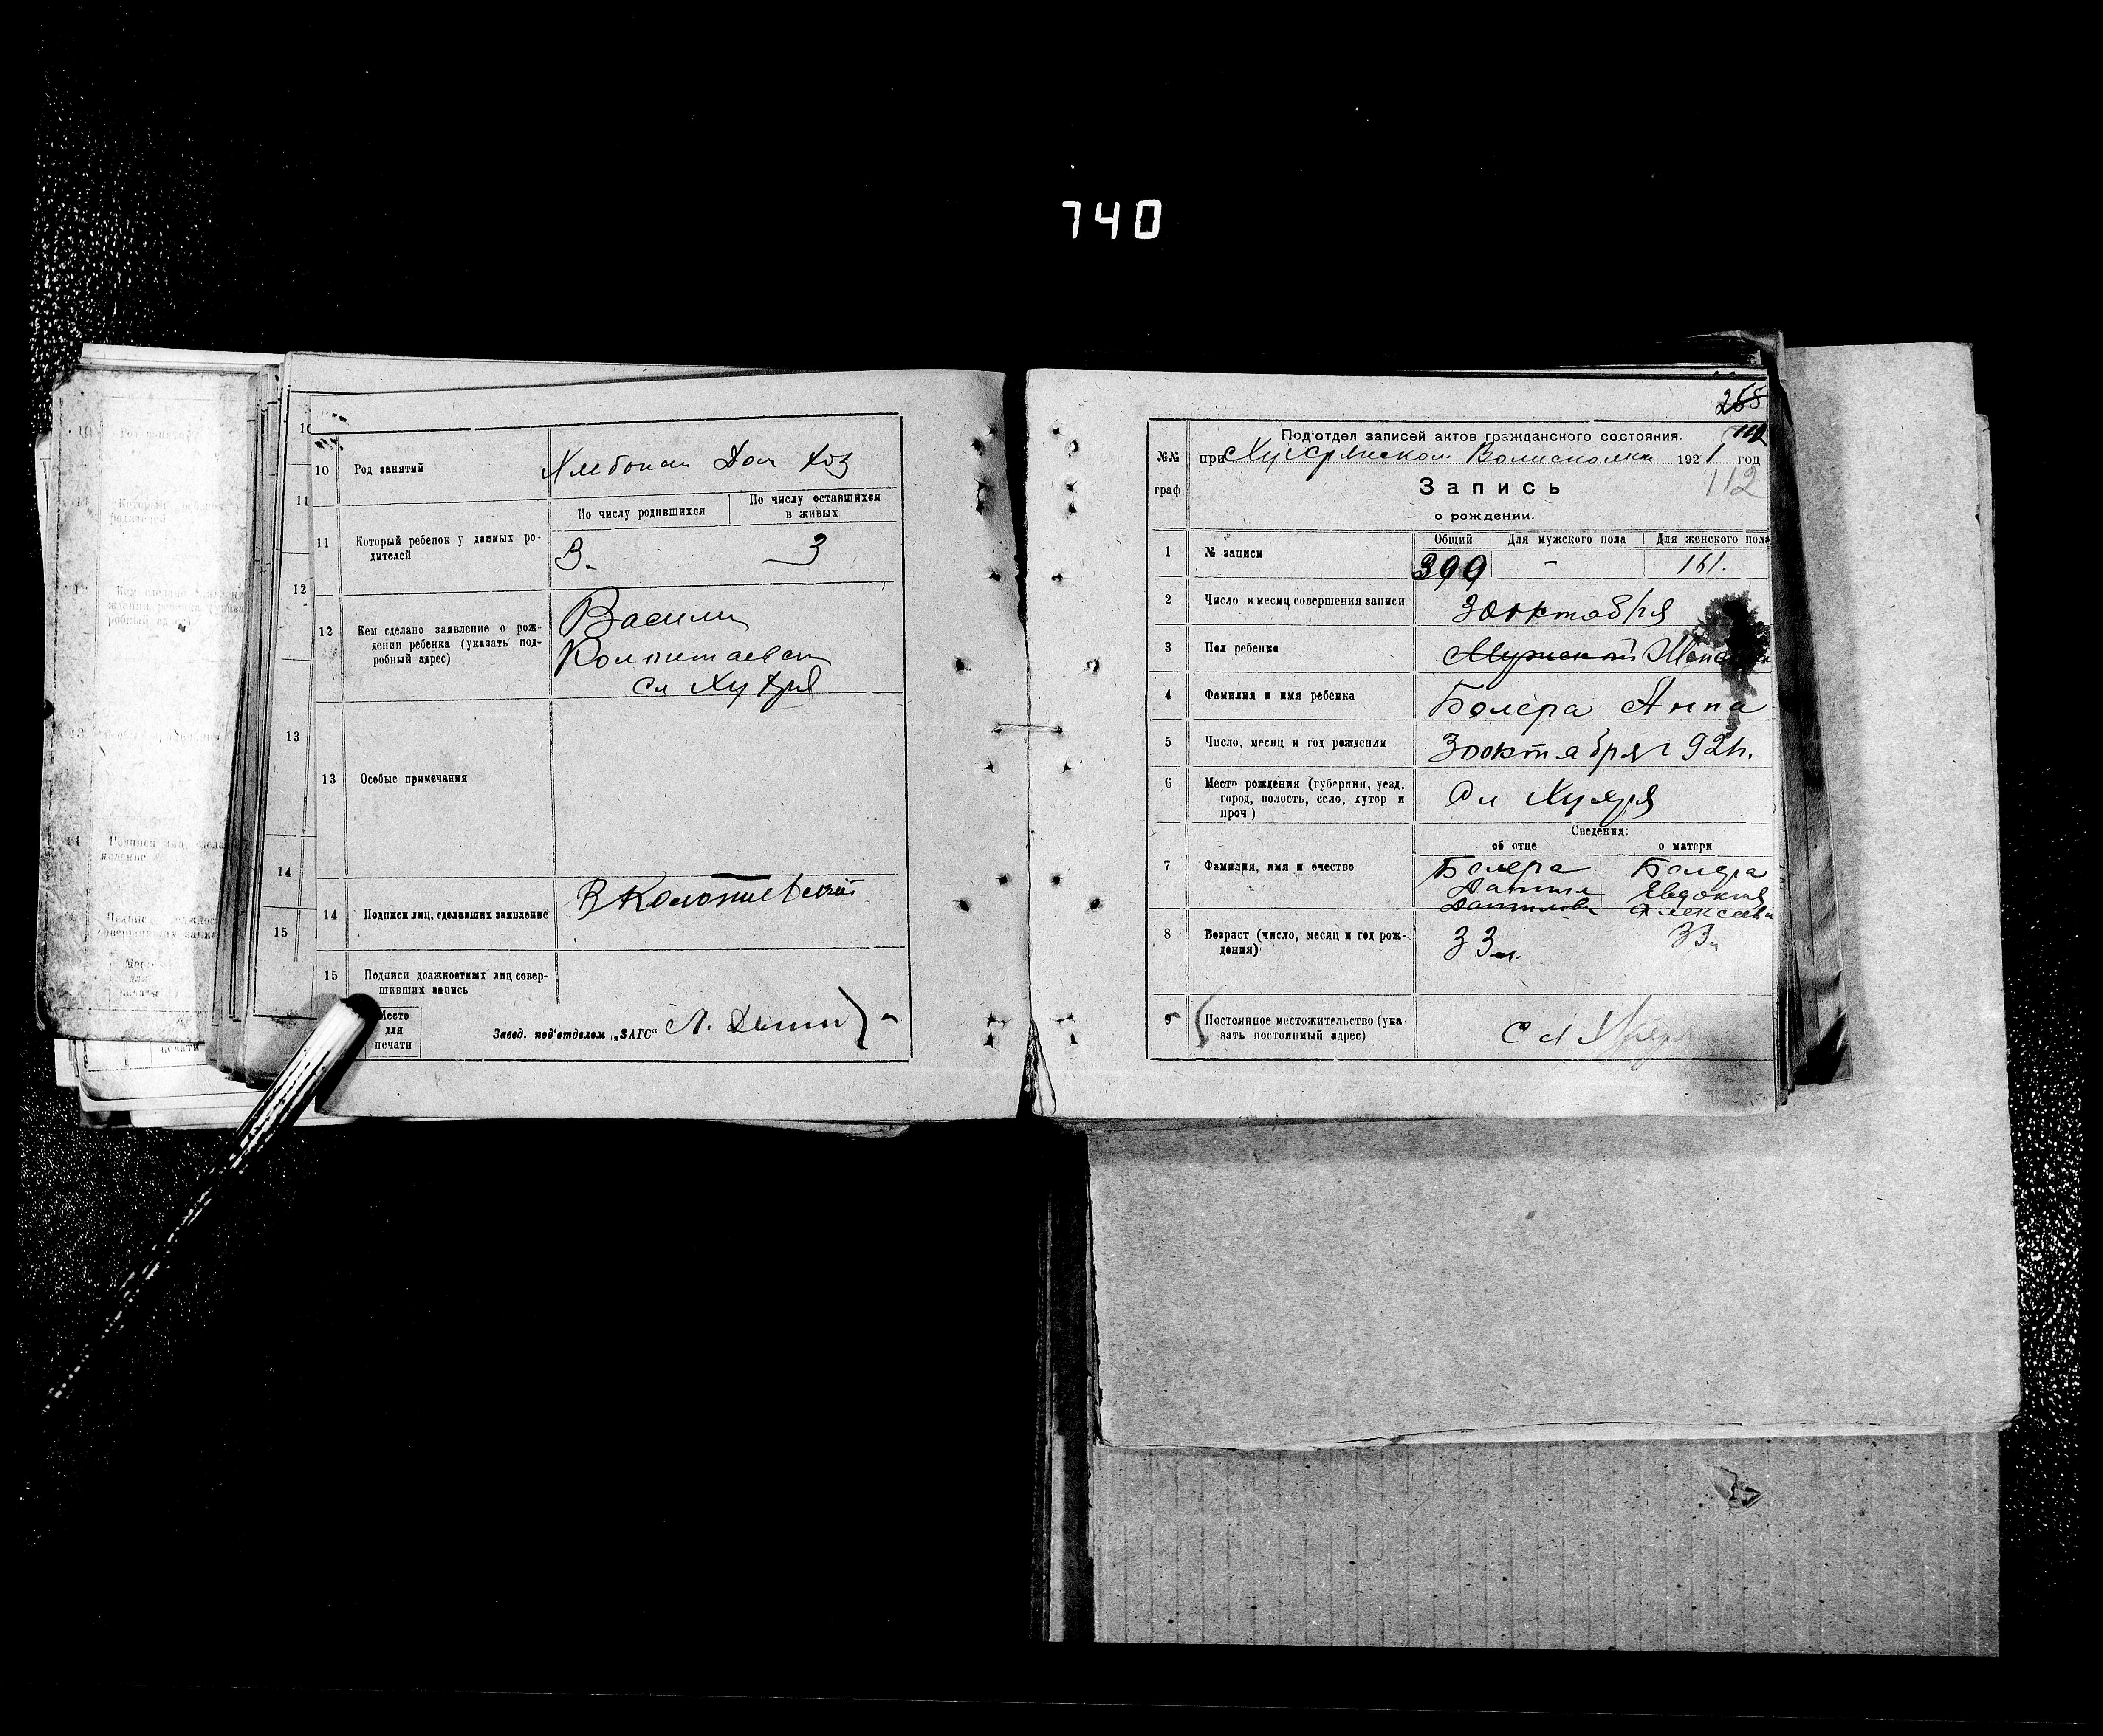 740
10 Род занятий Хлебопаш Дом хоз
По числу родившихся
По числу оставшихся
в живых
11 Который ребенок у данных ро-
дителей
3. 3
12 Кем сделано заявление о рож-
дении ребенка (указать под-
робный адрес)
Васили
сл Хухря
13 Особые примечания
14 Подписи лиц, сделавших заявление
15 Подписи должностных лиц совер-
шивших запись
Место
для
печати
Завед. под'отделом „ЗАГС“
10
11
12
13
14
15
268
112
Под'отдел записей актов гражданского состояния.
№№
граф
при Хухрянском Волисполкоме 1921 год
112
Запись
о рождении.
Общий Для мужского пола Для женского пола
1 № записи 399 - 161.
2 Число и месяц совершения записи 30 октября
3 Пол ребенка Мужской Женский
4 Фамилия и имя ребенка Анна
5 Число, месяц и год рождения 30 октября 1921г.
6 Место рождения (губерния, уезд,
город, волость, село, хутор и
проч)
Сл Хухря
Сведения:
об отце о матери
7 Фамилия, имя и очество
Данил Евдокия
Данилов Алексеевн
8 Возраст (число, месяц и год рож-
дения)
33 л. 33 л
9 Постоянное местожительство (ука
зать постоянный адрес)
Сл Хухря